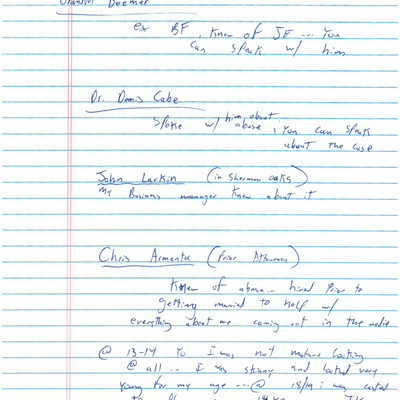 Deemer
ex BF, knew of JE ... You
can speak w/ him
Dr. Denis Cabe
Spoke w/ him about
abuse, you can speak
about the case
John Larkin (in Sherman Oaks)
My Business manager knew about it
Chris Armenta (Prior Attorney)
Knew of abuse.. hired prior to
getting married to help w/
everything about me coming out in the media
@ 13-14 Yo I was not mature looking
@ all.. I was skinny and looked very
young for my age ... @ 18/19 i was casted
to